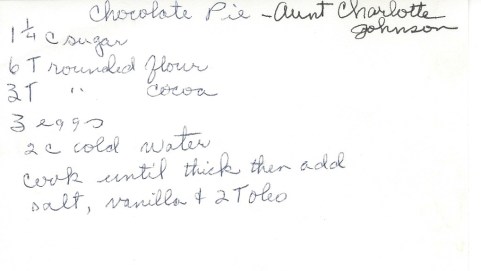 Chocolate Pie - Aunt Charlotte Johnson
1 1/4 c sugar
6 T rounded flour
3 T " cocoa
3 eggs
2 c cold water
cook until thick then add
salt, vanilla + 2 T oleo